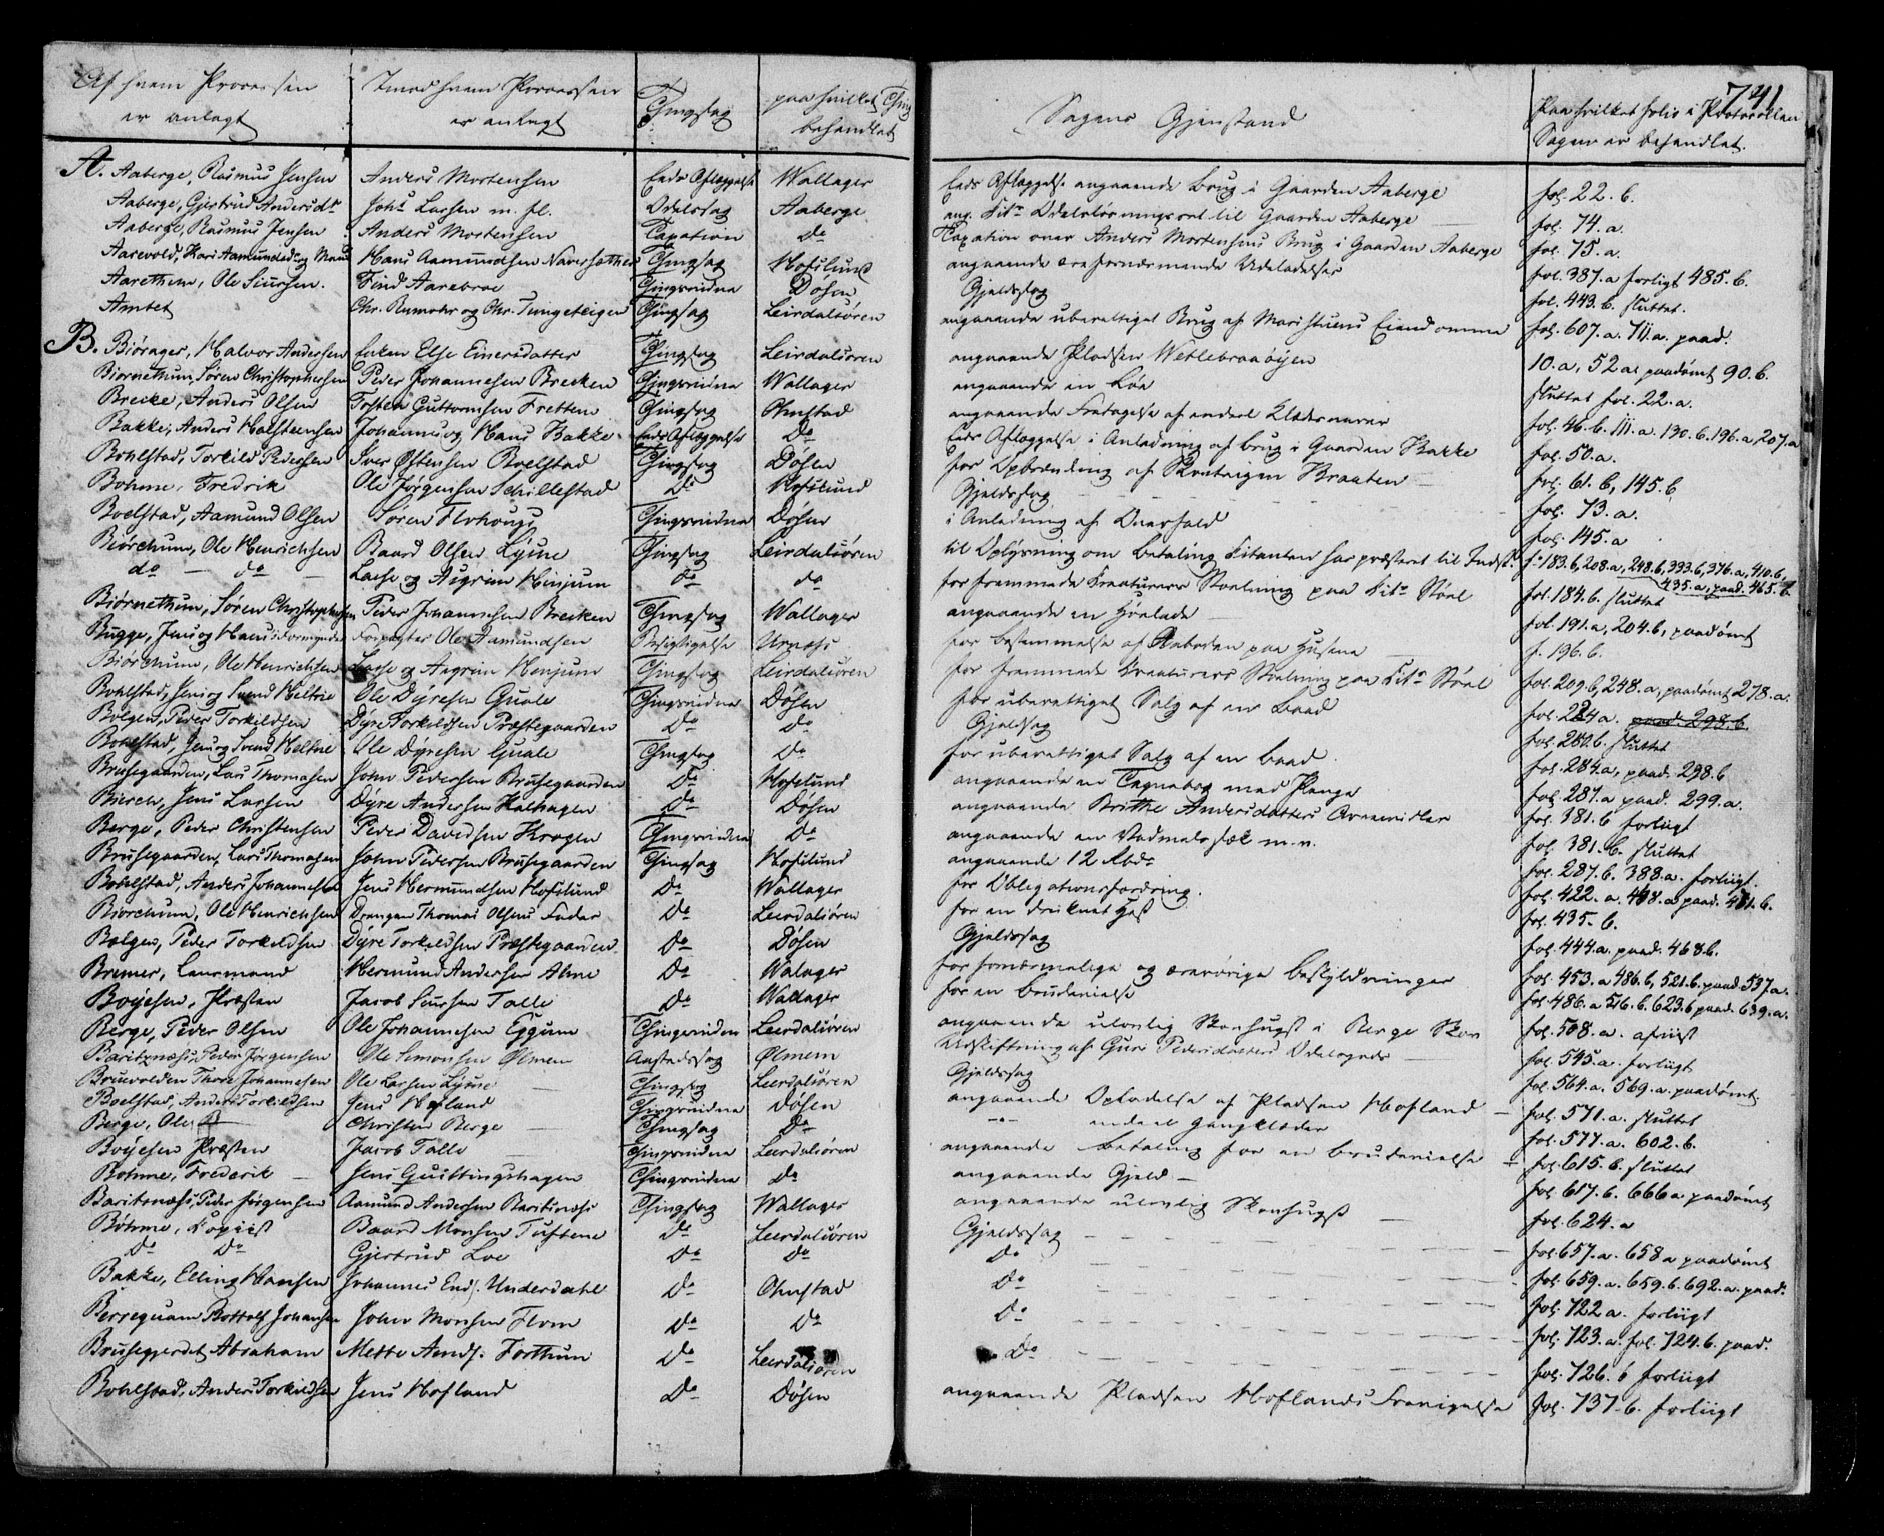 741
Af hvem Processen er anlagt | Imod hvem Processen er anlagt | Thingsag | paa hvilket Thing behandlet | Sagens Gjenstand | Paa hvilket folio i Protocollen Sagen er behandlet.
A. Aaberge, Rasmus Jensen | Anders Mortensen | Eeds Aflæggelse | Wallager | Eeds Aflæggelse angaaende Brug i Gaarden Aaberge | fol. 22. b.
Aaberge, Gjertrud Andersdr | Johs Larsen m. fl. | Odelssag | Aaberge | ang. Citr Odelsløsningsret til Gaarden Aaberge | fol. 74. a.
Aaberge, Rasmus Jensen | Anders Mortensen | Taxation | do | Taxation over Anders Mortensens Brug i Gaarden Aaberge | fol. 75. a.
Aarevold, Kari Aamundsdr og Mand | Hans Aamundsen Navarsethe | Thingsag | Hafslund | angaaende ærefornærmende Udeladelser | fol. 387. a forligt 485. b.
Aarethun, Ole Siursen. | Find Aarebroe | Thingsvidne | Døsen | Gjeldssag | fol. 443. b. sluttet.
Amtet | Chr. Rumohr og Chr. Tungeteigen | Thingsag | Leirdalsøren | angaaende uberettiget Brug af Maristuens Eiendomme | fol. 607. a. 711. a. paad.
B. Biørager, Halvor Andersen | Enken Else Einersdatter | Thingsag | Leirdalsøren | angaaende Pladsen Wetlebraaøyen | 10. a, 52 a. paadømt 90. b.
Biørnethun, Søren Christophersen | Peder Johannesen Brecken | Thingsvidne | Wallager | angaaende en Løe | sluttet fol. 22. a.
Brecke, Anders Olsen | Torsten Guttormsen Fretten | Thingsag | Ohnstad | angaaende Fratagelse af endeel Klædevarer | fol. 46. b. 111. a. 130. b. 196. a, 207. a
Bakke, Anders Halsteensen | Johannes og Hans Bakke | Eeds Aflæggelse | Do | Eeds Aflæggelse i Anledning af Brug i Gaarden Bakke | fol. 50. a.
Bohlstad, Torkild Pedersen | Iver Østensen Boelstad | Thingsag | Døsen | for Opbrænding af Skouteigen Braaten | fol. 61. b, 145. b,
Bohme, Fredrik | Ole Jørgensen Schillestad | Do | Hafslund | Gjeldssag | fol. 73. a.
Boelstad, Aamund Olsen | Søren Flohougs | Thingsvidne | Døsen | i Anledning af Overfald | fol. 145. a
Biørchum, Ole Henrichsen | Baard Olsen Lysne | Thingsag | Leirdalsøren | til Oplysning om Betaling Citanten har præsteret til Indst. | fo 183. b, 208. a, 248. b, 333. b, 376. a, 410. b, 435. a, paad. 465. b.
do — do — | Lasse og Asgrim Hinjum | do | do | for fremmede Kreaturers Stoeling paa Citrs Støel | fol. 184. b. sluttet
Biørnethun, Søren Christophersen | Peder Johannesen Brecken | Thingsag | Wallager | angaaende en Høelade | fol. 191. a, 204. b, paadømt
Bugge, Jens og Hans's Formynder | Forpagter Ole Aamundsen | Besigtigelse | Urnæs | for Bestemmelse af Aaboden paa Husene | f. 196. b.
Biørchum, Ole Henrichsen | Lasse og Asgrim Henjum | Thingsag | Leirdalsøren | for fremmede Kreaturers Stoeling paa Citrs Støel | fol. 209. b, 248. a, paadømt 278. a.
Bohlstad, Jens og Svend Heltne | Ole Dyresen Quale | Thingsvidne | Døsen | for uberettiget Salg af en Baad | fol. 224 a. paad. 298. b.
Bolgen, Peder Torkildsen | Dyre Torkildsen Præstegaarden | Do | Do | Gjeldssag | fol. 282. b. sluttet
Bohlstad, Jens og Svend Heltne | Ole Dyresen Quale | Thingsag | Do | for uberettiget Salg af en Baad. | fol. 284. a, paad. 298. b
Brusegaarden, Lars Thomasen | John Pedersen Brusegaarden | Do | Hafslund | angaaende en Tegnebog med Penge | fol. 287. a paad. 299. a.
Bierch, Jens Larsen | Dyre Andersen Halhagen | Do | Døsen | angaaende Brithe Andersdatters Arvemidler | fol. 381. b forliigt
Berge, Peder Christensen | Peder Davidsen Krogen | Thingsvidne | Do | angaaende en Vadmelssæk m. v. | fol. 381. b. sluttet
Brusegaarden, Lars Thomasen | John Pedersen Brusegaarden | Thingsag | Hafslund | angaaende 12 Rbdr | fol. 287. b. 388. a. forliigt.
Bohlstad, Anders Johannessen | Jens Hermundsen Hafslund | Do | Wallager | for Obligationsfordring. | fol. 422. a. 438. a paad. 451. b.
Biørchum, Ole Henrichsen | Drengen Thomas Olsens Fader | Do | Leerdalsøren | for en druknet Hest | fol. 435. b.
Bolgen, Peder Torkildsen | Dyre Torkildsen Præstegaarden | Do | Døsen | Gjeldssag | fol. 444. a. paad. 468. b.
Bremer, Lensmand | Hermund Andersen Ahne | Do | Walager | for fornærmelige og ærerørige Beskyldninger | fol. 453. a 486. b, 521. b. paad. 537. a.
Boyesen, Præsten | Jacob Siursen Talle | Do | Wallager | for en Brudevielse | fol. 486. a 516. b. 623. b paad. 639. a.
Berge, Peder Olsen | Ole Johannesen Eggum | Thingsvidne | Leerdalsøren | angaaende ulovlig Skovhugst i Berge Skov | fol. 508. a. afviist
Baritsnæs, Peder Jørgensen | Ole Simonsen Ølmem | Aastedssag | Ølmem | Udskiftning af Guri Pedersdatters Odelsgods | fol. 545. a. forliigt
Bruevolden Thore Johannesen | Ole Larsen Lysne | Thingsag | Leerdalsøren | Gjeldssag | fol. 564. a. 569. a. paadømt
Boelstad, Anders Torkildsen | Jens Hofland | Thingsvidne | Døsen | angaaende Opladelse af Pladsen Hofland | fol. 571. a. sluttet
Berge, Ole | Christen Berge | Thingsag | Do | — " — endeel Gangklæder | fol. 577. a. 602. b.
Boyesen Præsten | Jacob Talle | Thingsvidne | Leerdalsøren | angaaende Betaling for en Brudevielse | fol. 615. b. sluttet
Bohme, Frederik | Jens Quittingshagen | Thingsvidne | do | angaaende Gjeld — | fol. 617. b. 666 a. paadømt
Baritsnæs, Peder Jørgensen | Aamund Andersen Baritsnæs | Thingsag | Wallager | angaaende ulovlig Skovhugst | fol. 624. a
Böhme, Copiist | Baard Monsen Tuftene | Do | Leerdalsøren | Gjeldssag | fol. 657. a. 658 a paadømt
Do Do | Gjertrud Loe | Do | Do | Do | fol. 659. a. 659. b. 692. a. paad.
Bakke, Elling Hansen | Johannes Ends. Underdahl | Do | Ohnstad | Do | fol. 722 a. forliigt
Berrequam Bottolf Johansen | John Monsen Flom | Do | Do | Do | fol. 723. a. fol. 724. b. paad.
Brusegjerdet Abraham | Mette Ands. Forthun | Do | Leerdalsøren | Do | fol. 726. b forliigt
Bohlstad, Anders Torkildsen | Jens Hofland | Do | Døsen | angaaende Pladsen Hoflands Fravigelse | fol. 737. b. forliigt